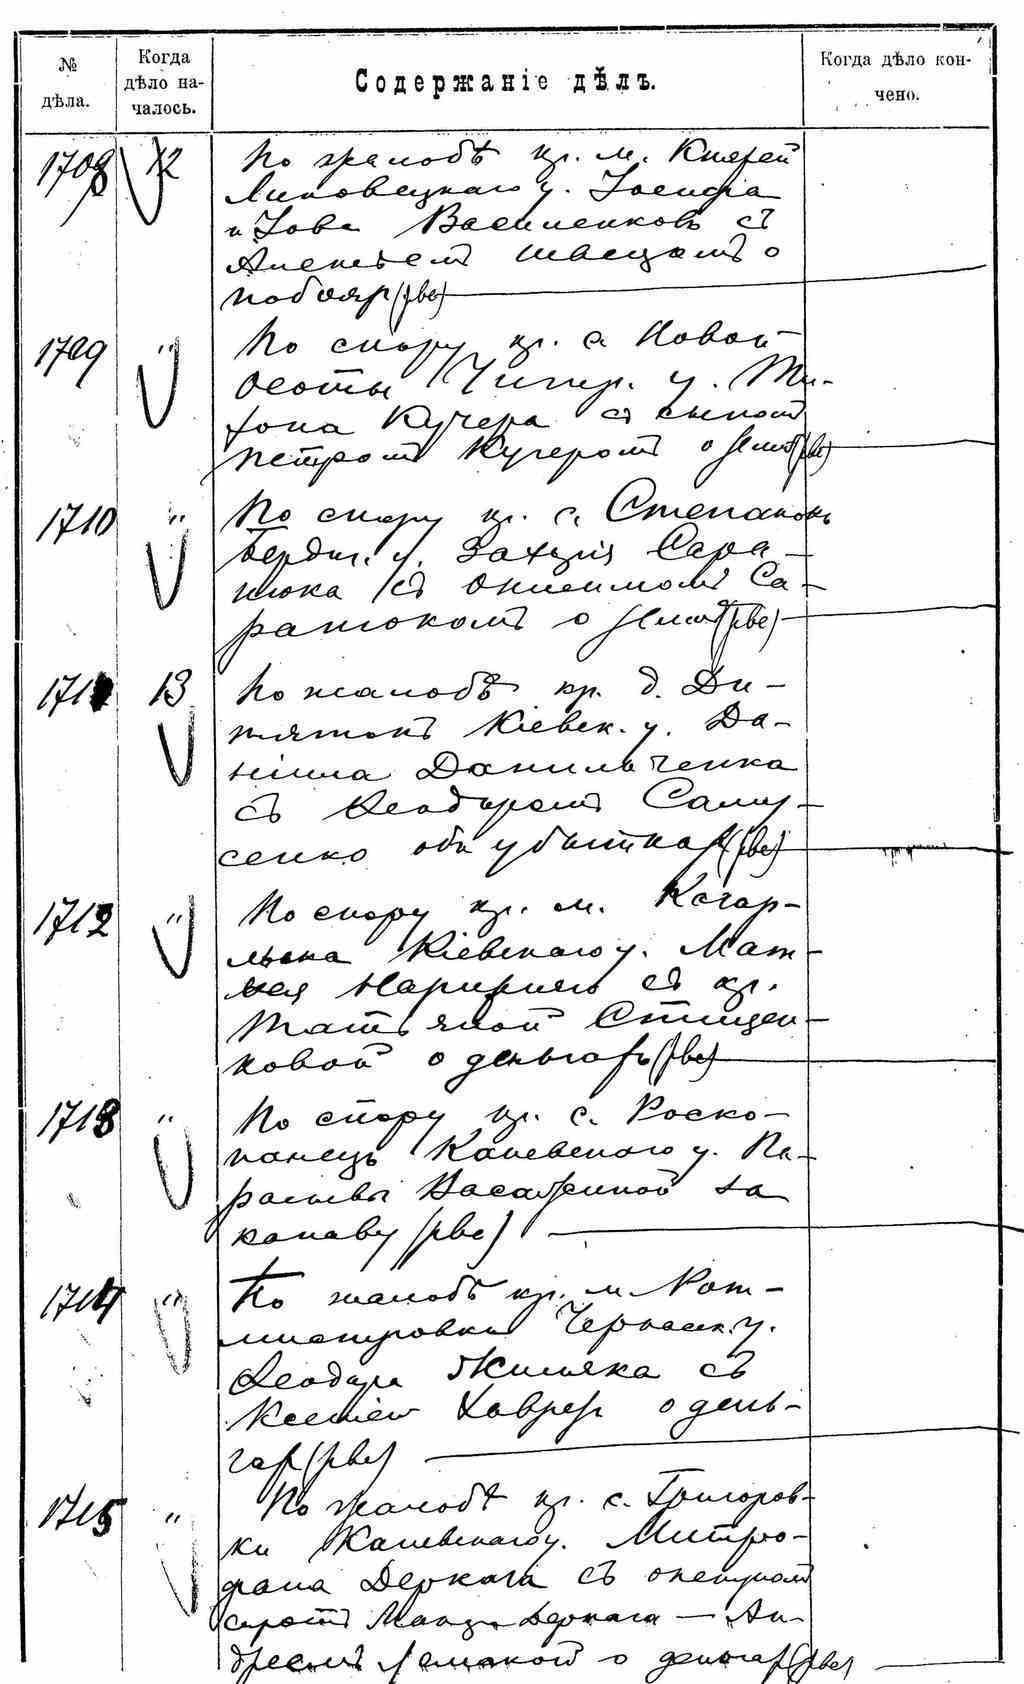 № дѣла.
Когда дѣло на-
чалось.
Содержаніе дѣлъ.
Когда дѣло кон-
чено.
1708 12 По жалобѣ кр. м. Княжей
Липовецкаго у. Іосифа
и Іова Василенковъ съ
Алексѣемъ Швецомъ о
побояхъ
1709 " По спору кр. с. Новой
Осоты Чигир. у. Ти-
хона Кучера съ сыномъ
Петромъ Кучеромъ о земл.
1710 " По спору кр. с. Степанокъ
Бердич. у. Захарія Сара-
нюка съ Онисимомъ Са-
ранюкомъ о земл.
1711 13 По жалобѣ кр. д. Ди-
тятокъ Кіевск. у. Да-
ніила Данильченка
съ Ѳеодоромъ Саму-
сенко объ убыткахъ
1712 " По спору кр. м. Кагар-
лыка Кіевскаго у. Мат-
вея съ кр.
Татьяной Стецен-
ковой о деньгахъ
1713 " По спору кр. с. Роско-
панецъ Каневскаго у. Па-
расьевы за
канаву
1714 " По жалобѣ кр. м. Рот-
мистровки Черкасск. у.
Ѳеодора съ
Ксеніей о день-
гахъ
1715 " По жалобѣ кр. с. Григоров-
ки Каневскаго у. Митро-
фана Деркача съ опекуномъ
сиротъ Деркача — Ан-
дреемъ о деньгахъ